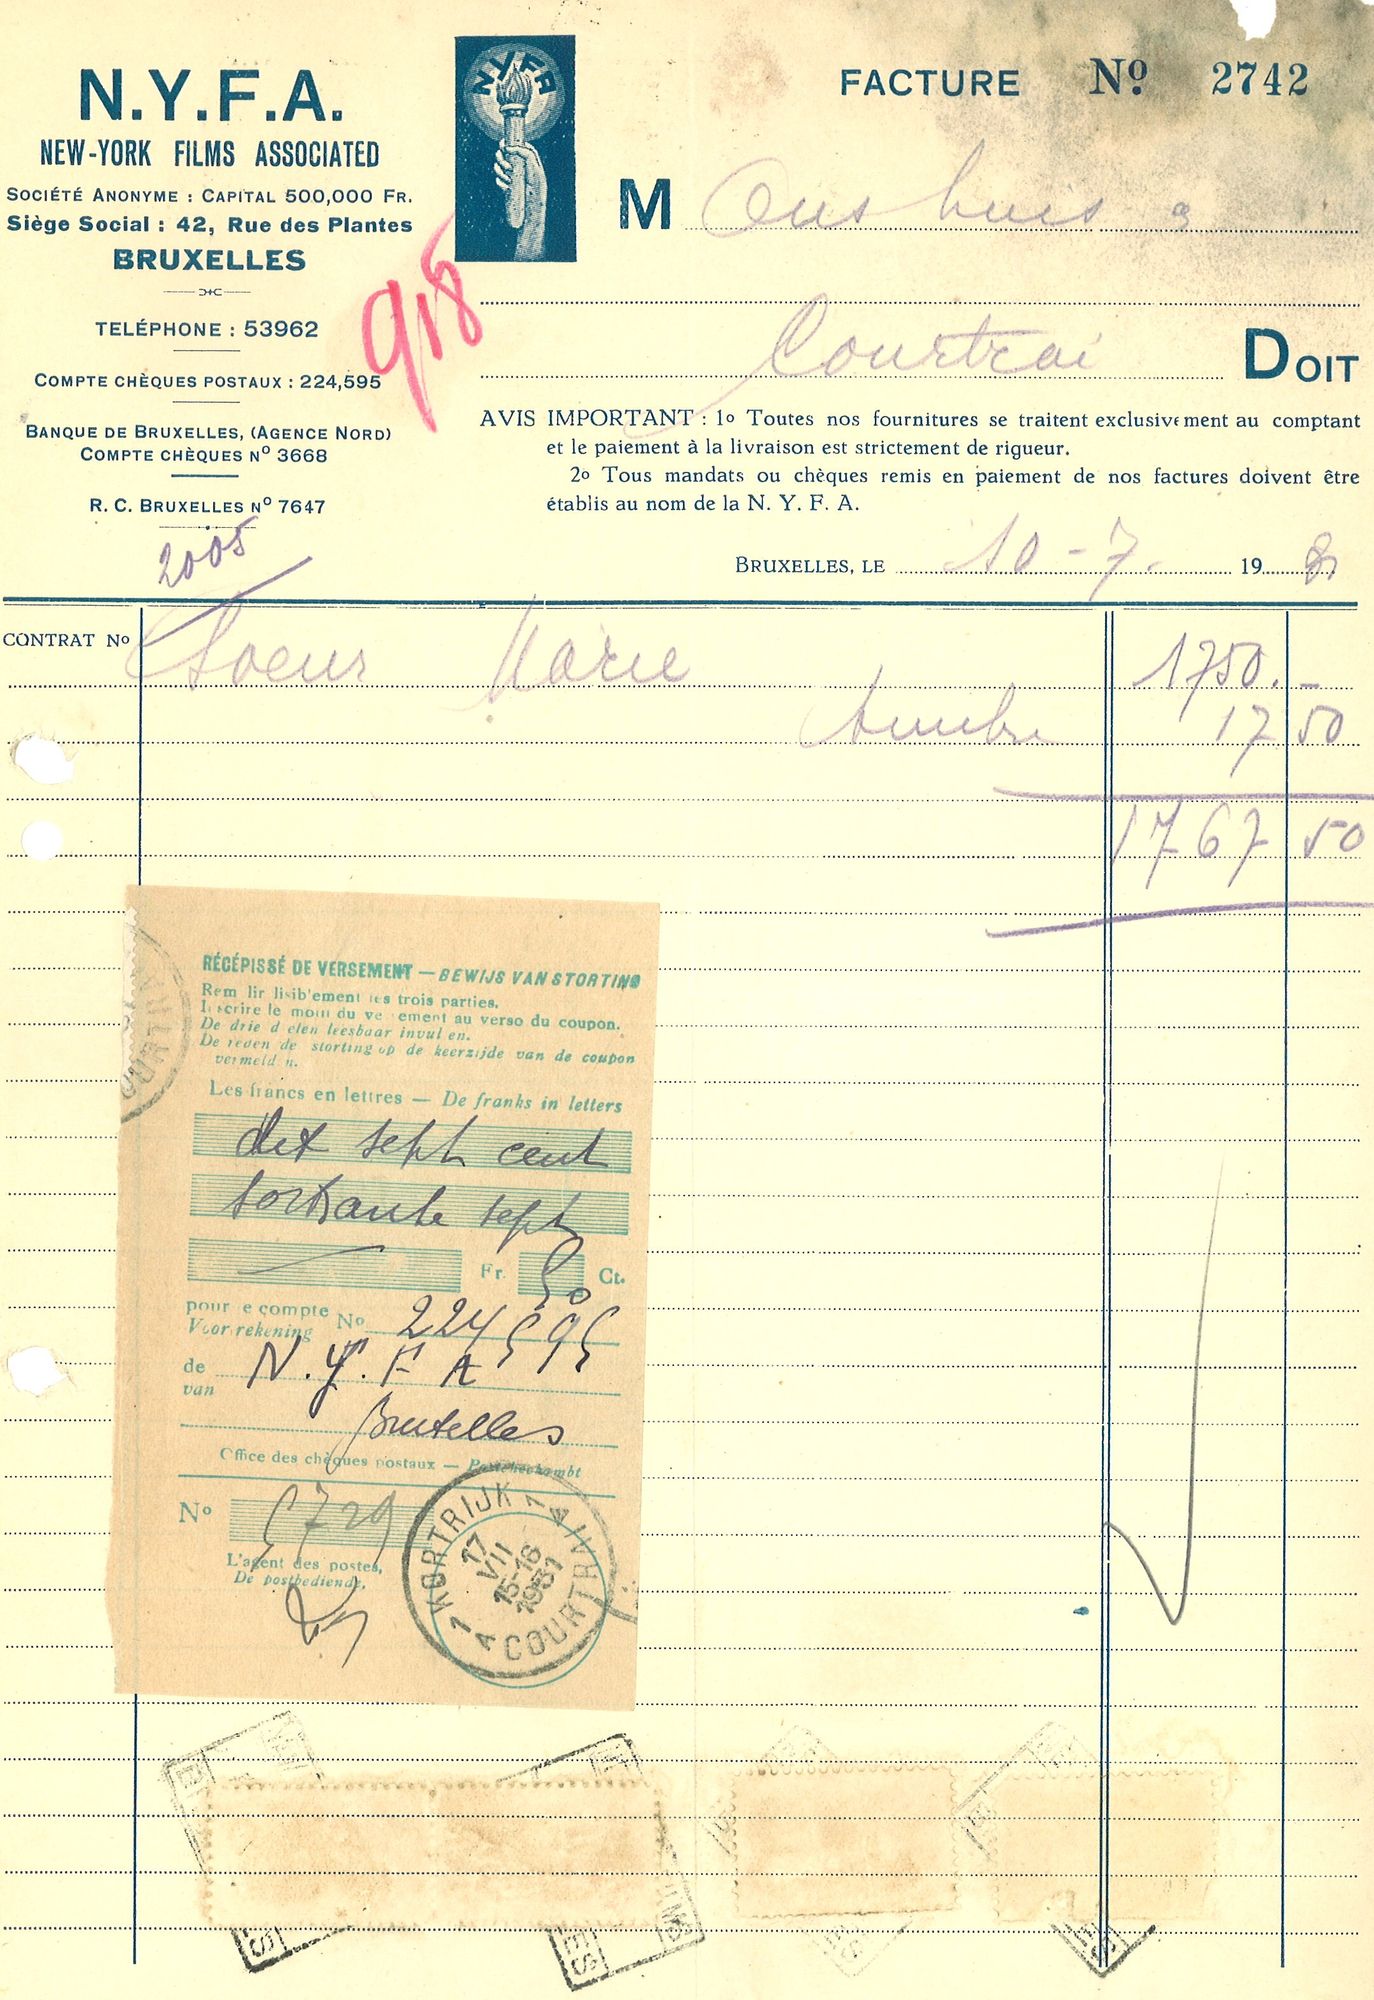 N.Y.F.A.
NEW-YORK FILMS ASSOCIATED
SOCIÉTÉ ANONYME : CAPITAL 500,000 FR.
Siège Social : 42, Rue des Plantes
BRUXELLES
TELÉPHONE : 53962
COMPTE CHÈQUES POSTAUX : 224,595
BANQUE DE BRUXELLES, (AGENCE NORD)
COMPTE CHÈQUES Nº 3668
R. C. BRUXELLES Nº 7647
NYFA
918
FACTURE Nº 2742
M Ons huis
Courtrai DOIT
AVIS IMPORTANT : 1º Toutes nos fournitures se traitent exclusivement au comptant
et le paiement à la livraison est strictement de rigueur.
2º Tous mandats ou chèques remis en paiement de nos factures doivent être
établis au nom de la N. Y. F. A.
BRUXELLES, LE 10-7. 19
2005
CONTRAT Nº Soeur Marie 1750.-
timbre 17 50
1767 50
RÉCÉPISSÉ DE VERSEMENT — BEWIJS VAN STORTING
Rem lir lisib'ement les trois parties.
Inscrire le motif du versement au verso du coupon.
De drie deelen leesbaar invullen.
De reden de storting op de keerzijde van de coupon
vermelden.
Les francs en lettres — De franks in letters
dix sept cent
soixante sept
Fr. 50 Ct.
pour le compte
Voor rekening No 224595
de N.Y.F.A
van
Bruxelles
Office des chèques postaux — Postcheckambt
Nº 5729
L'agent des postes,
De postbediende,
KORTRIJK 1A
17
VII
15-16
1931
1A COURTRAI